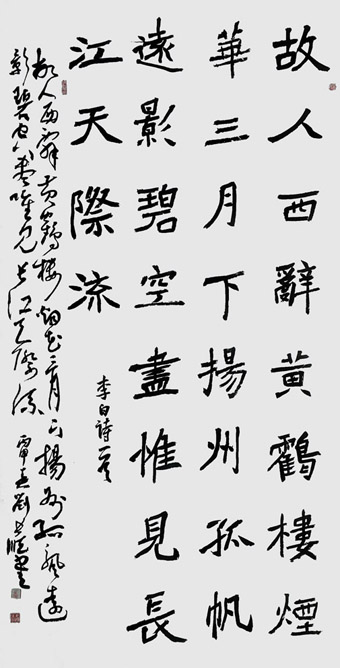 故人西辭黄鶴樓煙
華三月下揚州孤帆
遠影碧空盡惟見長
江天際流
李白詩一首
故人西辭黄鶴樓烟花三月下揚州孤帆遠
影碧空盡唯見長江天際流